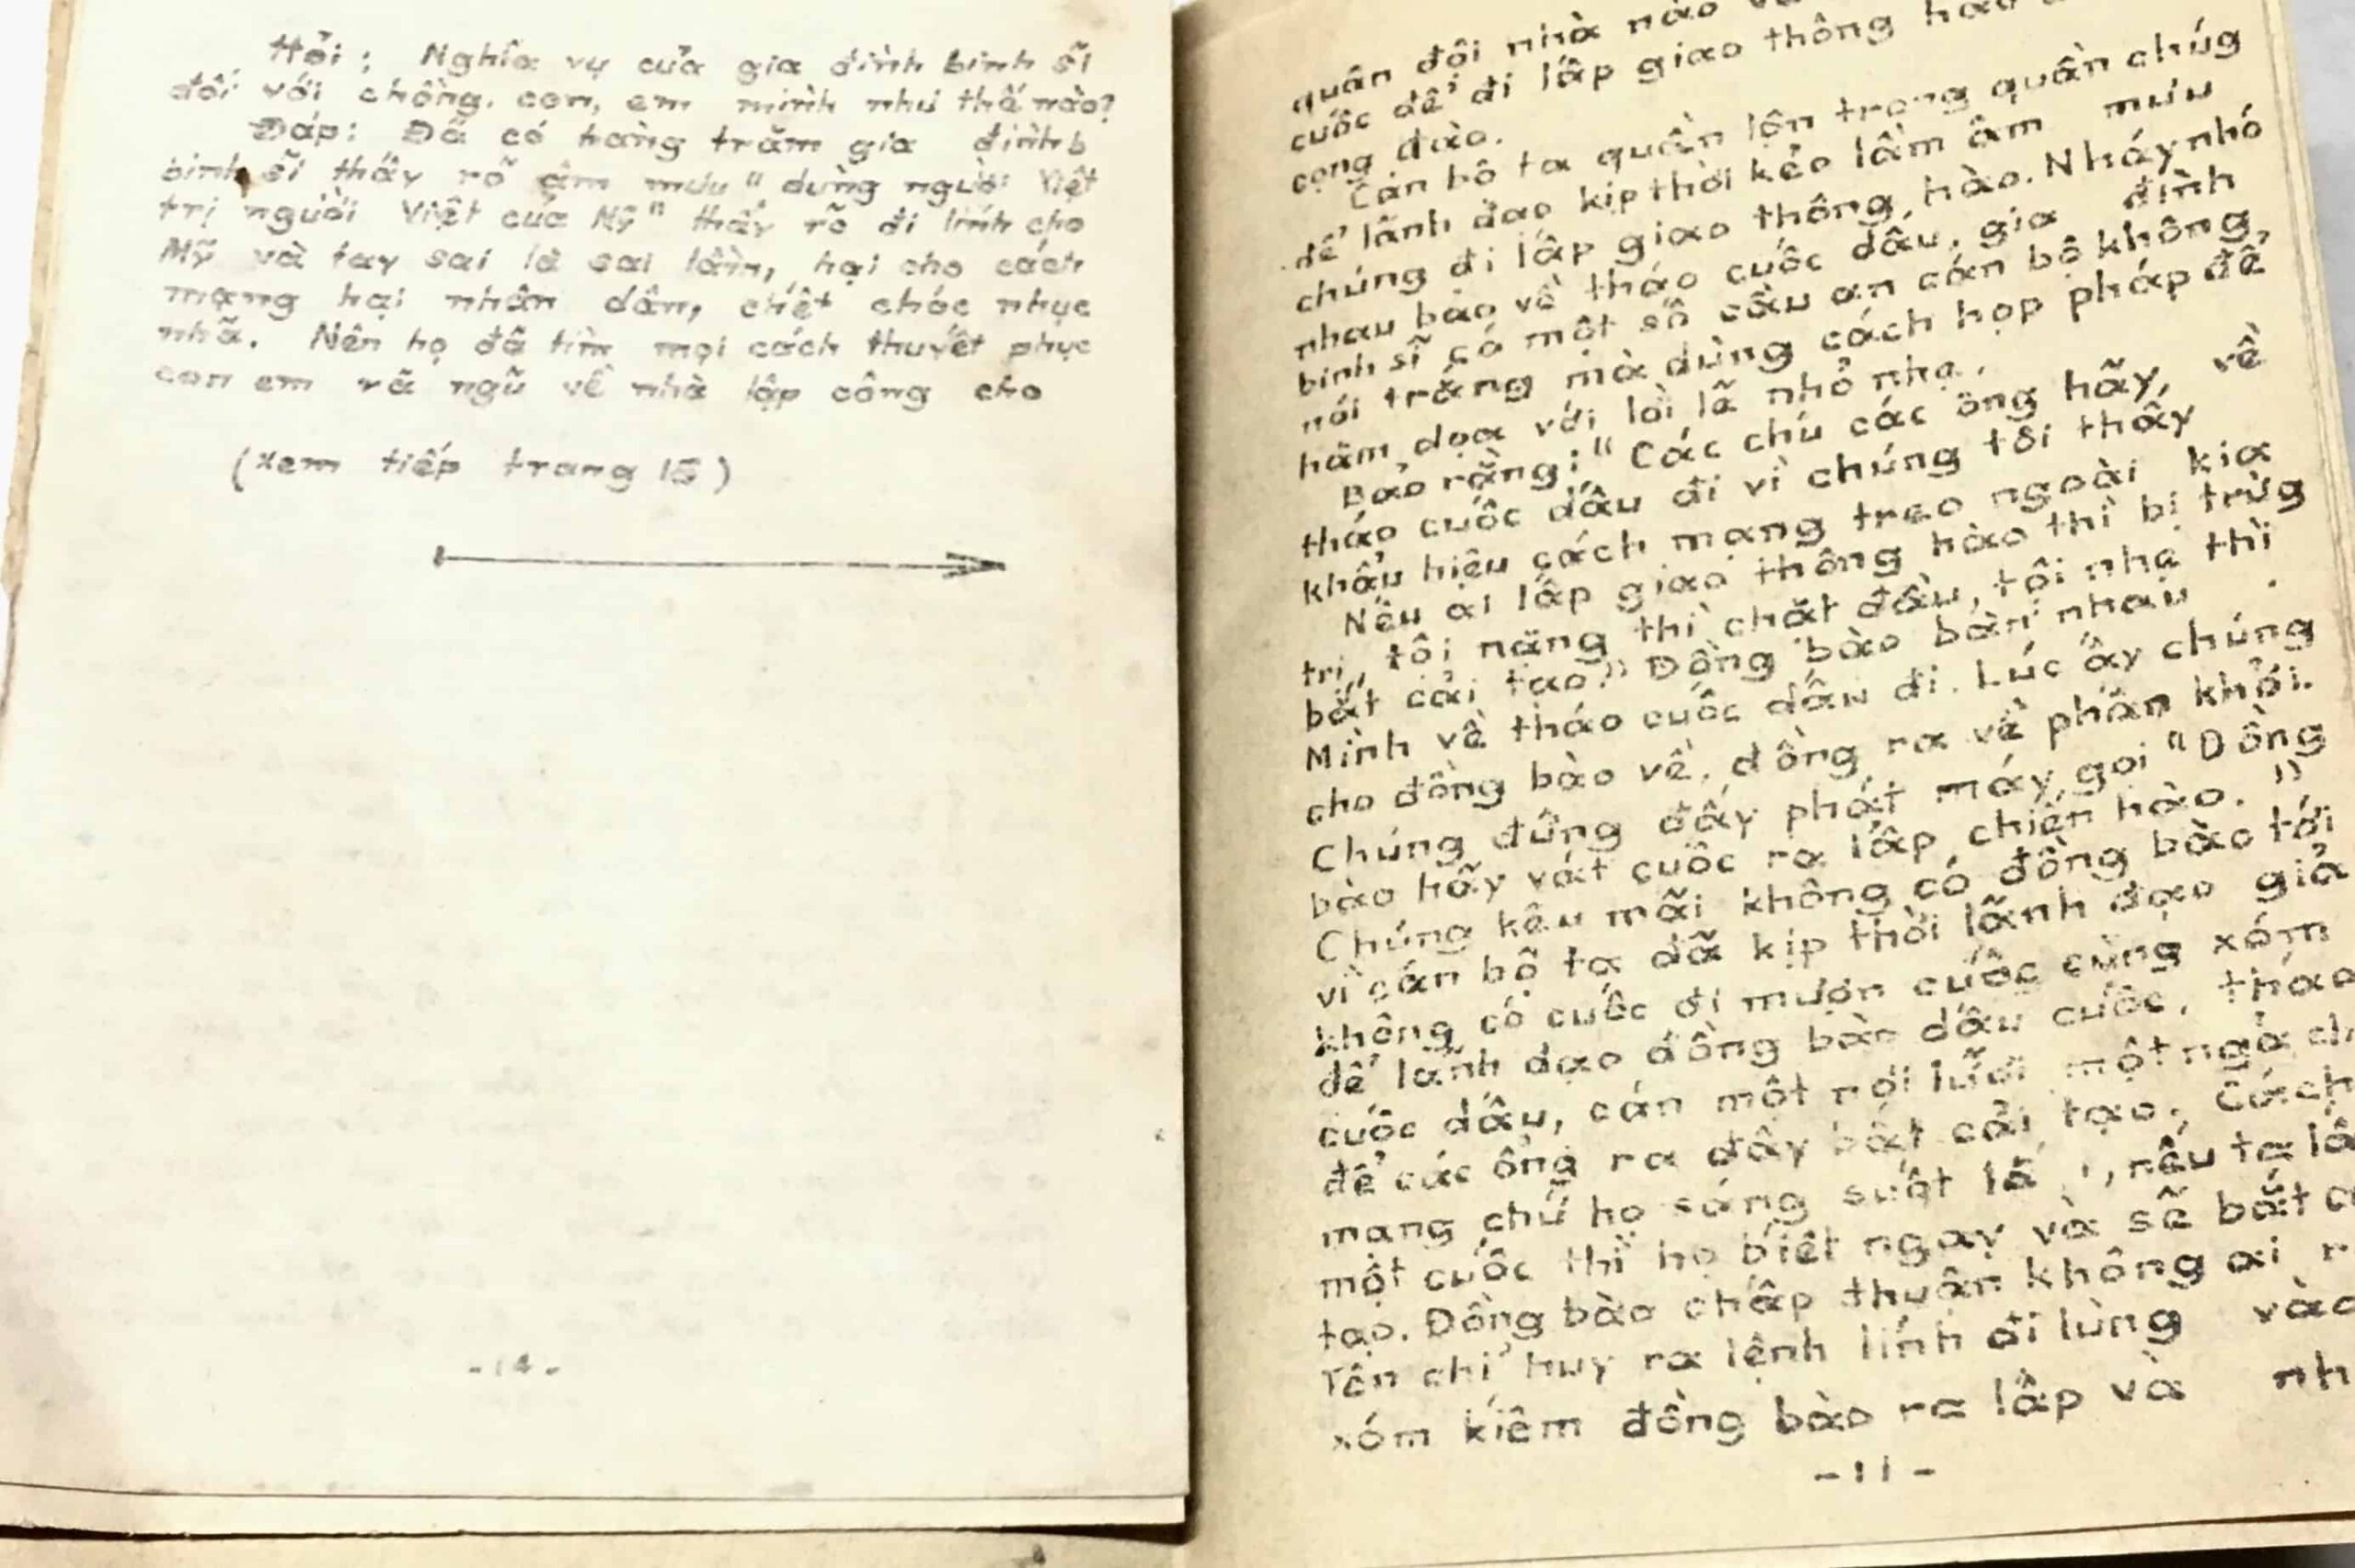 Hỏi: Nghĩa vụ của gia đình binh sĩ
đối với chồng, con, em mình như thế nào?
Đáp: Đã có hàng trăm gia đình b
binh sĩ thấy rõ âm mưu "dùng người Việt
trị người Việt của Mỹ" thấy rõ đi lính cho
Mỹ và tay sai là sai lầm, hại cho cách
mạng hại nhân dân, chết chóc nhục
nhã. Nên họ đã tìm mọi cách thuyết phục
con em rã ngũ về nhà lập công cho
(xem tiếp trang 15)
-14-
quân đội nhà nào
cuốc để đi lấp giao thông hào
cọng đào.
Cán bộ ta quần lộn trọng quần chúg
để lãnh đạo kịp thời kẻo lầm âm mưu
chúng đi lấp giao thông hào. Nháy nhó
nhau bảo về tháo cuốc dấu, gia đình
binh sĩ có một số cầu an cán bộ không
nói trắng mà dùng cách hợp pháp để
hăm dọa với lời lẽ nhỏ nhẹ.
Bảo rằng: "Các chú các ông hãy, về
tháo cuốc dấu đi vì chúng tôi thấy
khẩu hiệu cách mạng treo ngoài kia
Nếu ai lấp giao thông hào thì bị trừg
trị, tội nặng thì chặt đầu, tội nhẹ thì
bắt cải tạo." Đồng bào bàn nhau
Mình về tháo cuốc dấu đi. Lúc ấy chúng
cho đồng bào về, đồng ra về phấn khởi.
Chúng đứng đấy phát máy gọi "Đồng
bào hãy vát cuốc ra lấp chiến hào."
Chúng kêu mãi không có đồng bào tới
vì cán bộ ta đã kịp thời lãnh đạo giả
không có cuốc đi mượn cuốc cùng xóm
để lãnh đạo đồng bào dấu cuốc, tháo
cuốc dấu, cán một nơi lưỡi một ngả
để các ông ra đây bắt cải tạo. Cách
mạng chứ họ sáng suốt lắ , nếu ta lấ
một cuốc thì họ biết ngay và sẽ bắt
tạo. Đồng bào chấp thuận không ai
Tên chỉ huy ra lệnh lính đi lùng vào
xóm kiếm đồng bào ra lấp và nh
-11-